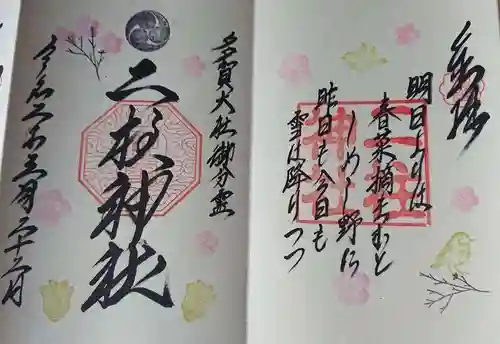 奉拝
明日よりは
春菜摘まむと
しめし野に
昨日も今日も
雪は降りつつ
二柱
神社
多賀大社御分霊
二柱神社
令和二年三月二十二日